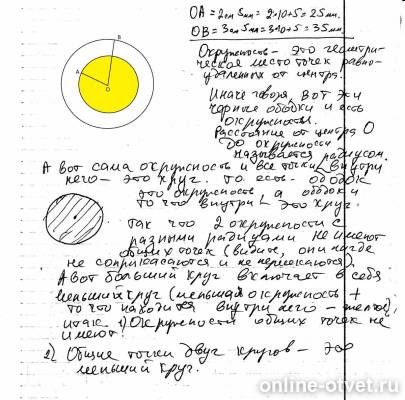 OA = 2см 5мм = 2*10+5 = 25мм.
OB = 3см 5мм = 3*10+5 = 35мм.
B
A
O
Окружность - это геометри-
ческое место точек равно-
удаленных от центра.
Иначе говоря, вот эти
черные ободки и есть
окружности.
Расстояние от центра O
до окружности
называется радиусом.
А вот сама окружность и все точки внутри
него - это круг. То есть ободок
это окружность, а ободок и
то что внутри - это круг.
Так что 2 окружности с
разными радиусами не имеют
общих точек (видите, они нигде
не соприкасаются и не пересекаются).
А вот больший круг включает в себя
меньший круг (меньшая окружность +
то что находится внутри него - желтое),
итак 1) Окружности общих точек не
имеют!
2) Общие точки двух кругов - это
меньший круг.
online-otvet.ru